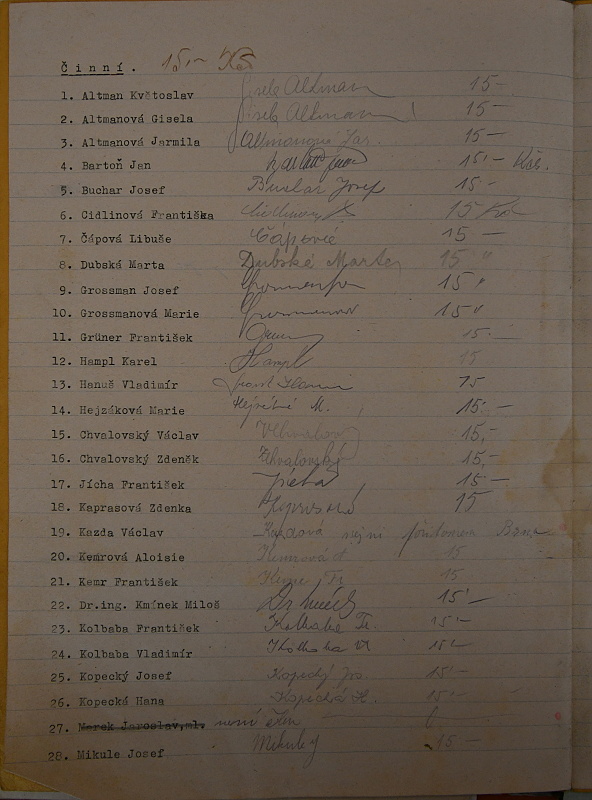 Činní. 15,- Kčs
1. Altman Květoslav Gisela Altman 15-
2. Altmanová Gisela Gisela Altman 15-
3. Altmanová Jarmila Altmanová Jar. 15-
4. Bartoň Jan 15,- Kčs.
5. Buchar Josef Buchar Josef 15-
6. Cidlinová Františka 15 Kčs
7. Čápová Libuše Čápová 15-
8. Dubská Marta Dubská Marta 15 "
9. Grossman Josef 15 "
10. Grossmanová Marie 15 "
11. Grüner František 15-
12. Hampl Karel Hampl 15
13. Hanuš Vladimír 15
14. Hejzáková Marie M. 15,-
15. Chvalovský Václav 15,-
16. Chvalovský Zdeněk Chvalovský 15,-
17. Jícha František Jícha 15-
18. Kaprasová Zdenka 15
19. Kazda Václav Brno
20. Kemrová Aloisie Kemrová A 15
21. Kemr František Kemr Fr. 15
22. Dr.ing. Kmínek Miloš 15,-
23. Kolbaba František Kolbaba Fr. 15,-
24. Kolbaba Vladimír Kolbaba Vl 15,-
25. Kopecký Josef Kopecký Jos. 15,-
26. Kopecká Hana Kopecká H. 15,-
27. Marek Jaroslav,ml. není člen
28. Mikule Josef 15-